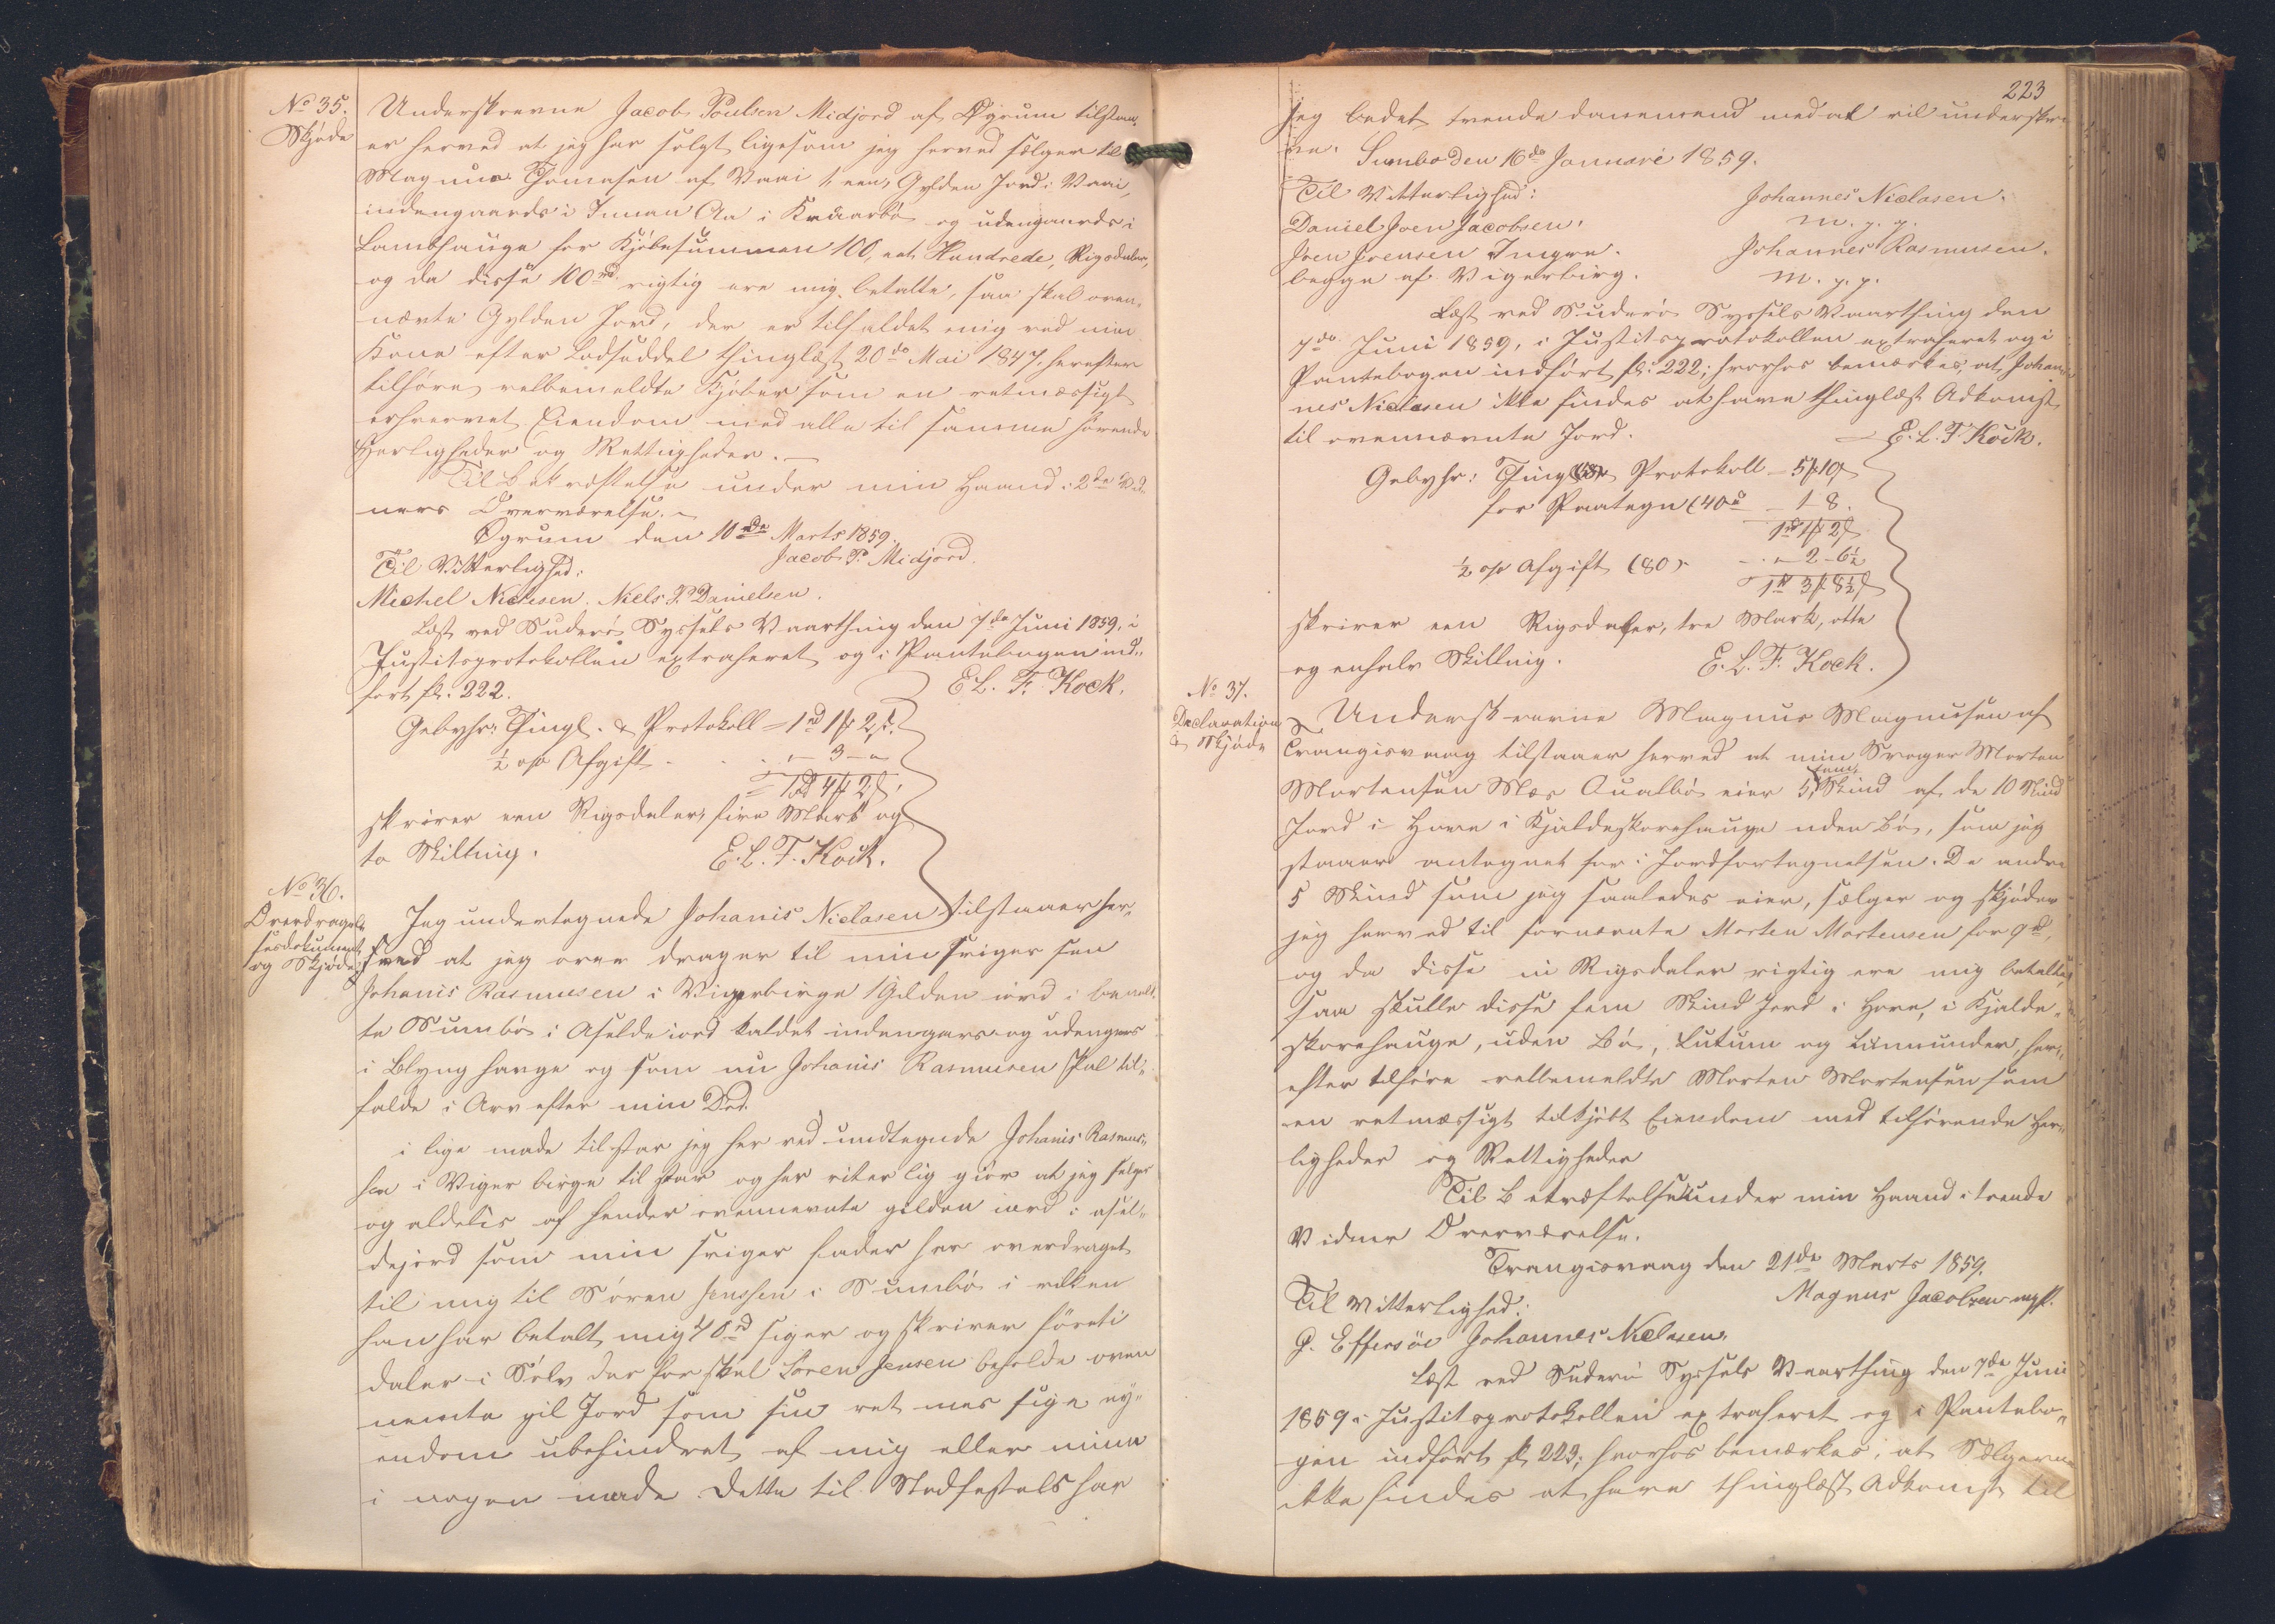 No 35.
Skjøde
Underskrevne Jacob Poulsen Midjord af Øgrum tilstaa-
er herved at jeg har solgt ligesom jeg herved sælger til
Magnus Thomasen af Vaai 1, een, Gylden Jord i Vaai,
indengaards i Innan Aa i Kráarbø og udengaards i
Lambhauge for Kjøbesummen 100, eet Hundrede, Rigsdaler,
og da disse 100 rd rigtig ere mig betalte, saa skal oven-
nævte Gylden Jord, der er tilfaldet mig ved min
Kone efter Lodseddel thinglæst 20de Mai 1847, herefter
tilhøre velbemeldte Kjøber som en retmæssigt
erhvervet Eiendom med alle til samme hørende
Herligheder og Rettigheder. —
Til Bekræftelse under min Haand i 2de Vid-
ners Overværelse. —
Øgrum den 10nde Marts 1859.
Jacob P. Midjord.
Til Vitterlighed:
Michel Niclesen. Niels P. Danielsen.
Læst ved Suderø Syssels Vaarthing den 7de Juni 1859, i
Justitsprotokollen extraheret og i Pantebogen ind-
ført fl. 222.
E. L. F. Kock.
Gebyhr: Thingl. & Protokoll = 1rd 1 ℔ 2 ß.
½ o/o Afgift - . . - 3 - "
= 1rd 4 ℔ 2 ß.
skriver een Rigsdaler, fire Mark og
to Skilling.
E. L. F. Kock.
No 36.
Overdragel-
sesdokument
og Skjøde
Jeg undertegnede Johanis Niclasen tilstaaer her-
ved at jeg over drager til min sviger søn
Johanis Rasmusen i Vigerbirge 1 Gilden iord i benæv-
te Sumbø i Aselde iord kaldet indengars og udengars
i Blyng hauge og som nu Johanis Rasmusen skal til-
falde i Arv efter min Død.
i lige made tilstar jeg her ved undtegnde Johanis Rasmus-
sen i Viger birge til star og her viterlig giør at jeg selger
og aldelis af hender ovennevnte gilden iord i asel-
dejord som min sviger fader har overdraget
til mig til Søren Jenssen i Sumbø i vilken
han har betalt mig 40 rd siger og skriver føreti
daler i Sølv der for skal Søren Jensen beholde oven
nevnte gil Jord som sin ret mes sige ey-
endom ubehindret af mig eller mine
i nogen made. Dette til Stedfestels har
223
jeg bedet tvende danemend med at vil underskri-
ve. Sumbø den 16de Januari 1859.
Til Vitterlighed:
Johannes Niclasen.
Daniel Joen Jacobsen.
m. p. p.
Joen Joensen
Johannes Rasmusen.
begge af Vigerbirg.
m. p. p.
Læst ved Suderø Syssels Vaarthing den
7de Juni 1859, i Justitsprotokollen extraheret og i
Pantebogen indført fl: 222; hvorhos bemærkes, at Johan-
nes Niclasen ikke findes at have thinglæst Adkomst
til ovennævnte Jord.
— E. L. F. Kock.
Gebyhr: Thingl. & Protokoll — 5 ℔ 10 ß
for Paategn (40 — 1 8.
1rd 1 ℔ 2 ß
½ o/o Afgift (80) . - 2 - 6½
1rd 3 ℔ 8½ ß
skriver een Rigsdaler, tre Mark, otte
og enhalv Skilling.
E. L. F. Kock.
No 37.
Declaration
& Skjøde
Underskrevne Magnus Magnusen af
Trangisvaag tilstaaer herved at min Svoger Morten
Mortensen Mær Qualbø eier 5, fem, Skind af de 10 Skind
Jord i Hove i Kjaldeskorehauge uden Bø, som jeg
staaer antegnet for i Jordfortegnelsen. De andre
5 Skind som jeg saaledes eier, sælger og skjøder
jeg herved til fornævnte Morten Mortensen for 9 rd,
og da disse ni Rigsdaler rigtig ere mig betalte,
saa skulle disse fem Skind Jord i Hove, i Kjalde-
skorehauge, uden Bø, Lutum og Lunnunder, her-
efter tilhøre velbemeldte Morten Mortensen som
en retmæssigt tilkjøbt Eiendom med tilhørende Her-
ligheder og Rettigheder
Til Bekræftelse under min Haand i tvende
Vidner Overværelse.
Trangisvaag den 21de Marts 1859.
Magnus Jacobsen
Til Vitterlighed:
G. Effersøe Johannes Niclasen.
Læst ved Suderø Syssels Vaarthing den 7de Juni
1859 i Justitsprotokollen extraheret og i Pantebo-
gen indført fl. 223; hvorhos bemærkes, at Sælgeren
ikke findes at have thinglæst Adkomst til